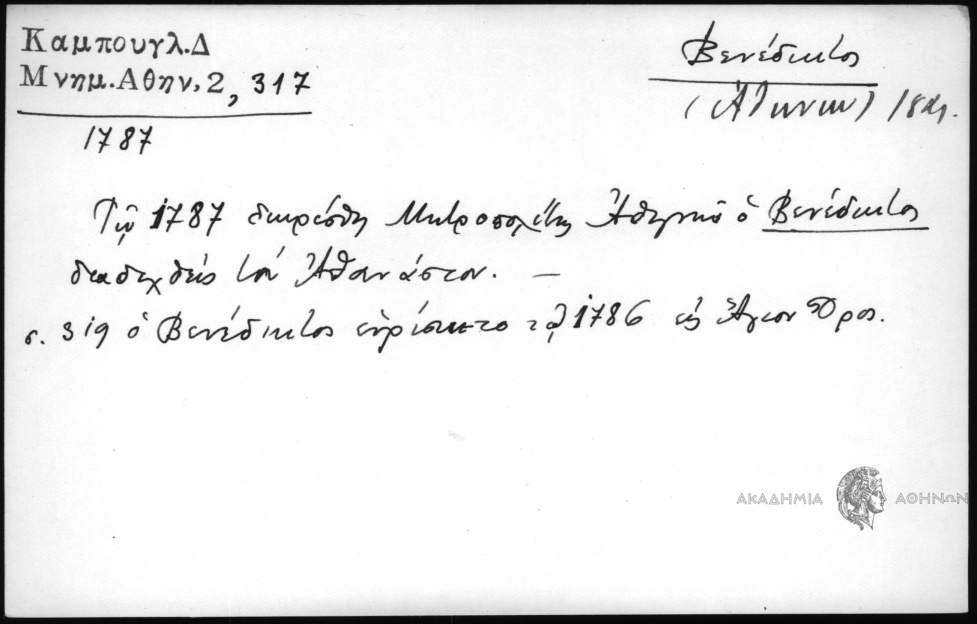 Καμπουγλ.Δ
Μνημ.Αθην. 2, 317
1787
Βενέδικτος
(Ἀθηνῶν) 18 αι.
Τῷ 1787 διωρίσθη Μητροπολίτης Ἀθηνῶν ὁ Βενέδικτος
διαδεχθείς τόν Ἀθανάσιον. —
σ. 319 ὁ Βενέδικτος εὑρίσκετο τῷ 1786 εἰς Ἅγιον Ὄρος.
ΑΚΑΔΗΜΙΑ ΑΘΗΝΩΝ